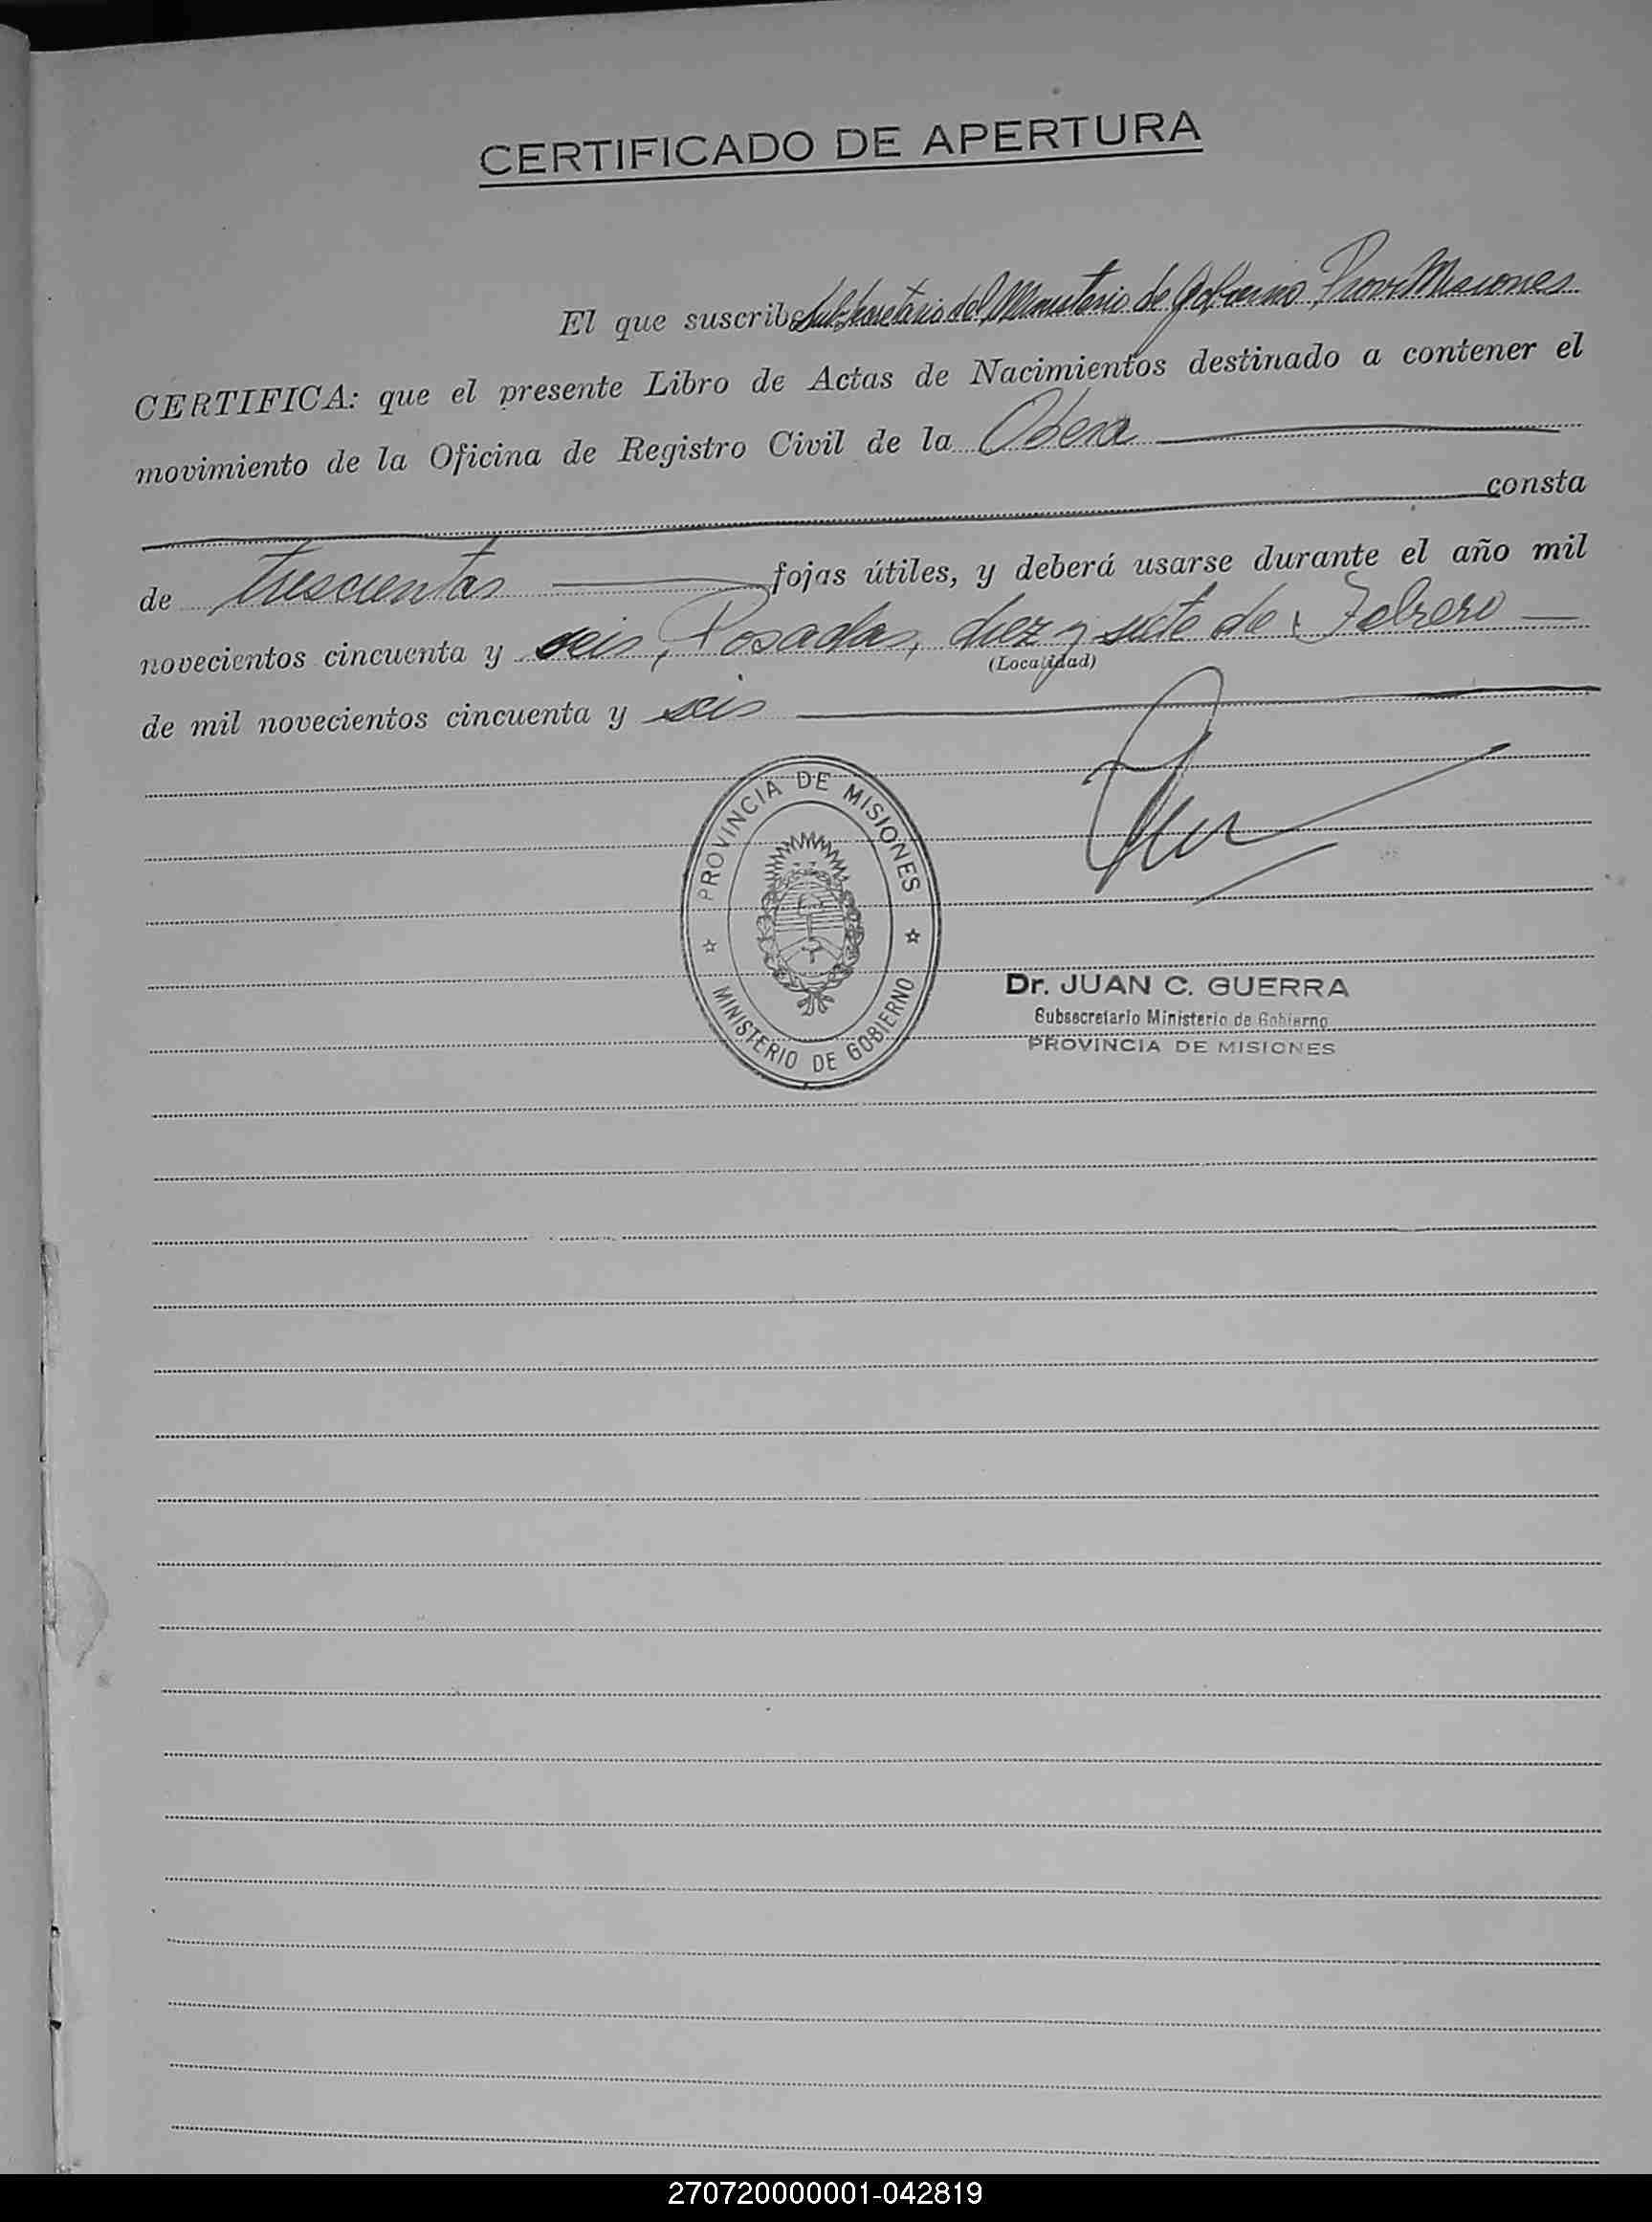 CERTIFICADO DE APERTURA
El que suscribe Subsecretario del Ministerio de Gobierno Prov. Misiones
CERTIFICA: que el presente Libro de Actas de Nacimientos destinado a contener el
movimiento de la Oficina de Registro Civil de la Obera
consta
de trescientas fojas útiles, y deberá usarse durante el año mil
novecientos cincuenta y seis, Posadas, diez y siete de Febrero
(Localidad)
de mil novecientos cincuenta y seis
PROVINCIA DE MISIONES
MINISTERIO DE GOBIERNO
Dr. JUAN C. GUERRA
Subsecretario Ministerio de Gobierno
PROVINCIA DE MISIONES
270720000001-042819